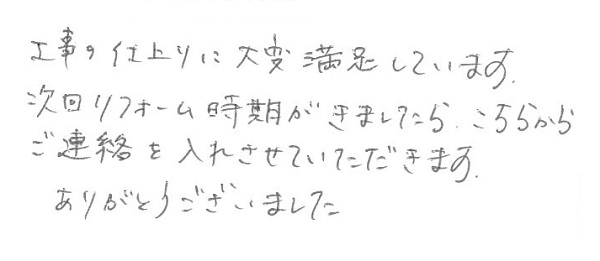 工事の仕上りに大変満足しています.
次回リフォーム時期がきましたら、こちらから
ご連絡を入れさせていただきます.
ありがとうございました